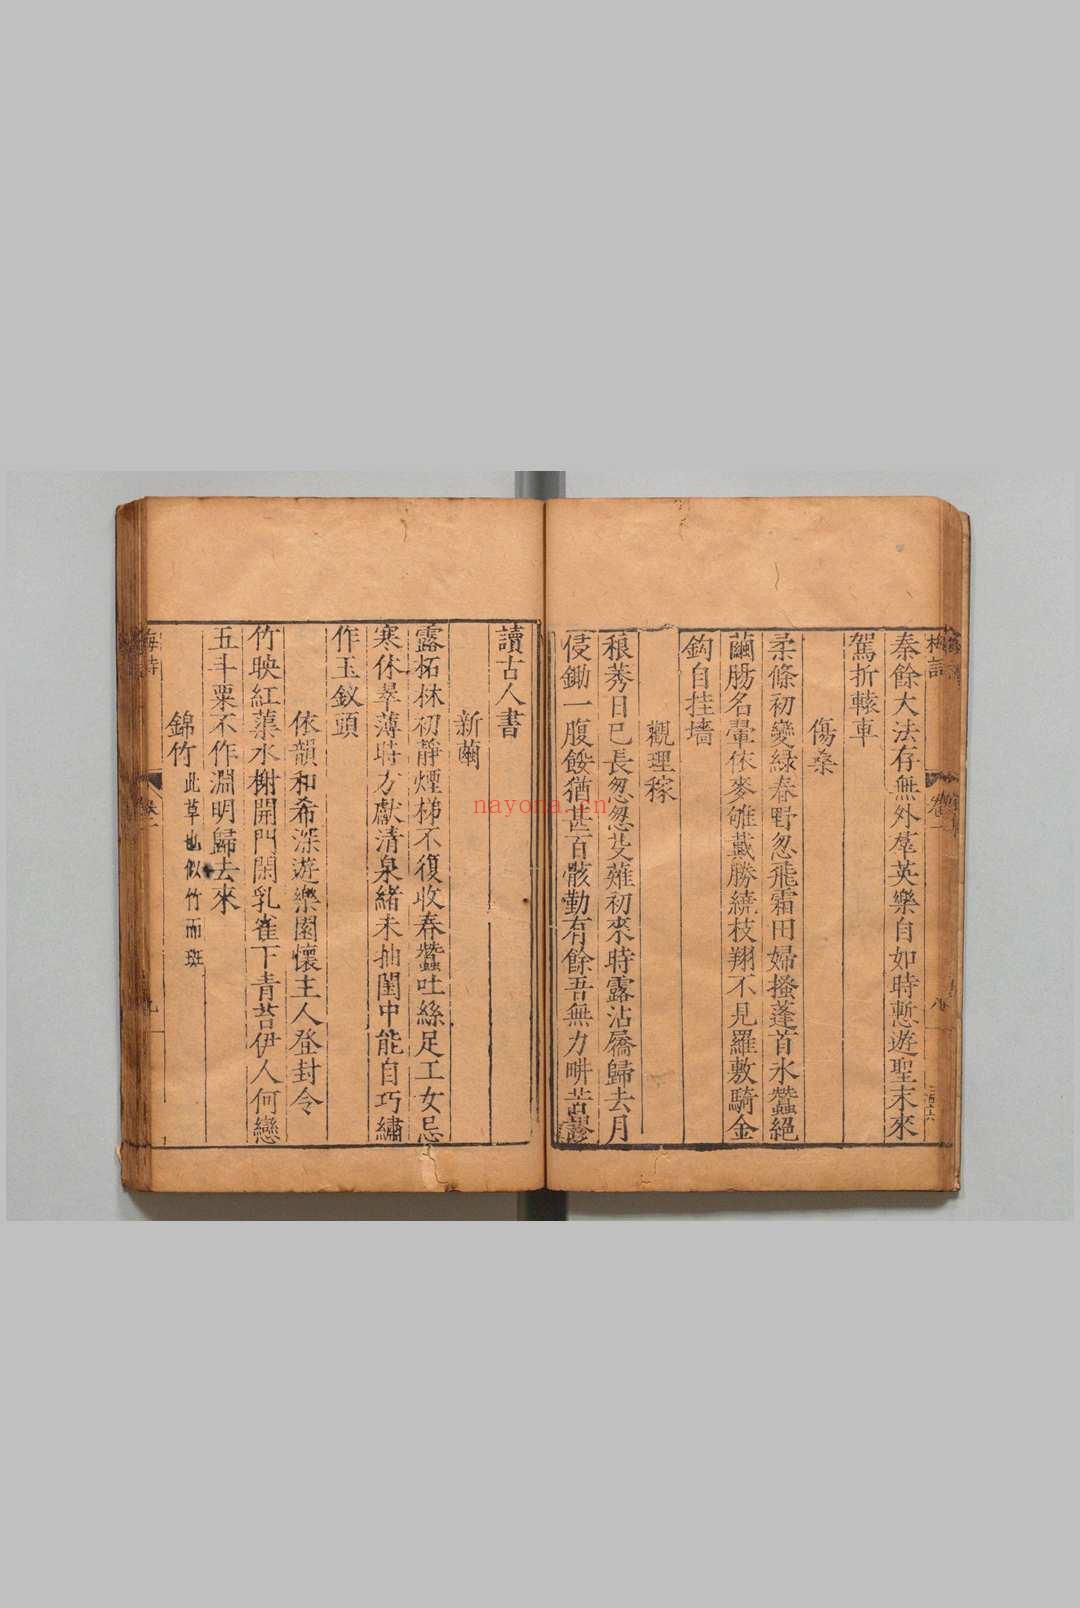 秦餘大法存無外耄英樂自如時慙遊聖末來
駕折轅車
傷桑
柔條初變綠春野忽飛霜田婦搔蓬首氷蠶絕
繭腸名翬依麥雊戴勝繞枝翔不見羅敷騎金
鈎自挂墻
觀理稼
稂莠日已長忽忽芟薙初來時露沾屩歸去月
侵鋤一腹餒猶甚百骸勤有餘吾無力畊苦謬
讀古人書
新繭
露柘林初靜煙梯不復收春蠶吐絲足工女忌
寒休翠薄時方獻清泉緒未抽閨中能自巧繡
作玉釵頭
依韻和希深遊樂園懷主人登封令
竹映紅蕖水榭開門閑乳雀下青苔伊人何戀
五斗粟不作淵明歸去來
錦竹 此草也似竹而斑
梅詩
卷一
九
梅詩
卷一
八
nayona.cn